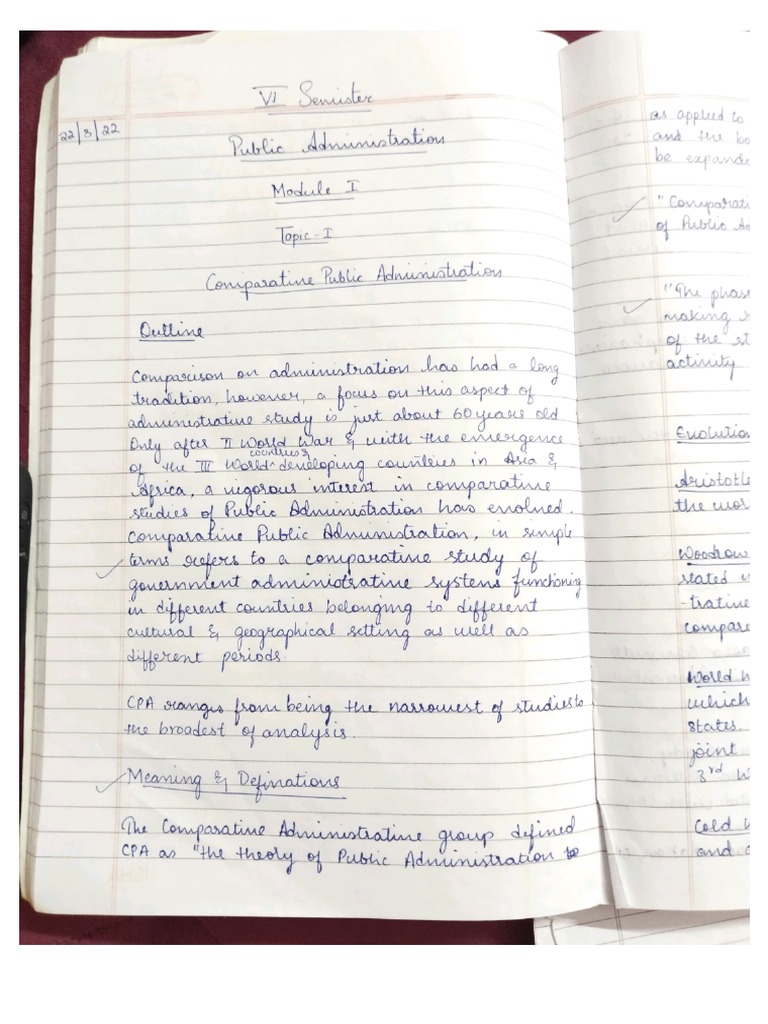 VI Semister
22/3/22
Public Administration
Module I
Topic-I
Comparative Public Administration
Outline
Comparison on administration has had a long
tradition, however, a focus on this aspect of
administrative study is just about 60 years old
Only after II World War & with the emergence
of the III World ^ countries & developing countries in Asia &
Africa, a vigorous interest in comparative
studies of Public Administration has evolved.
Comparative Public Administration, in simple
terms refers to a comparative study of
government administrative systems functioning
in different countries belonging to different
cultural & geographical setting as well as
different periods.
CPA ranges from being the narrowest of studies to
the broadest of analysis.
Meaning & Definations
The Comparative Administrative group defined
CPA as "the theory of Public Administration to
as applied to
and the
be
"
of Public
"The
making
of the
activity
Evolution
Aristotle
the
Woodrow
stated
-trative
World
which
states.
joint
3rd
Cold
and